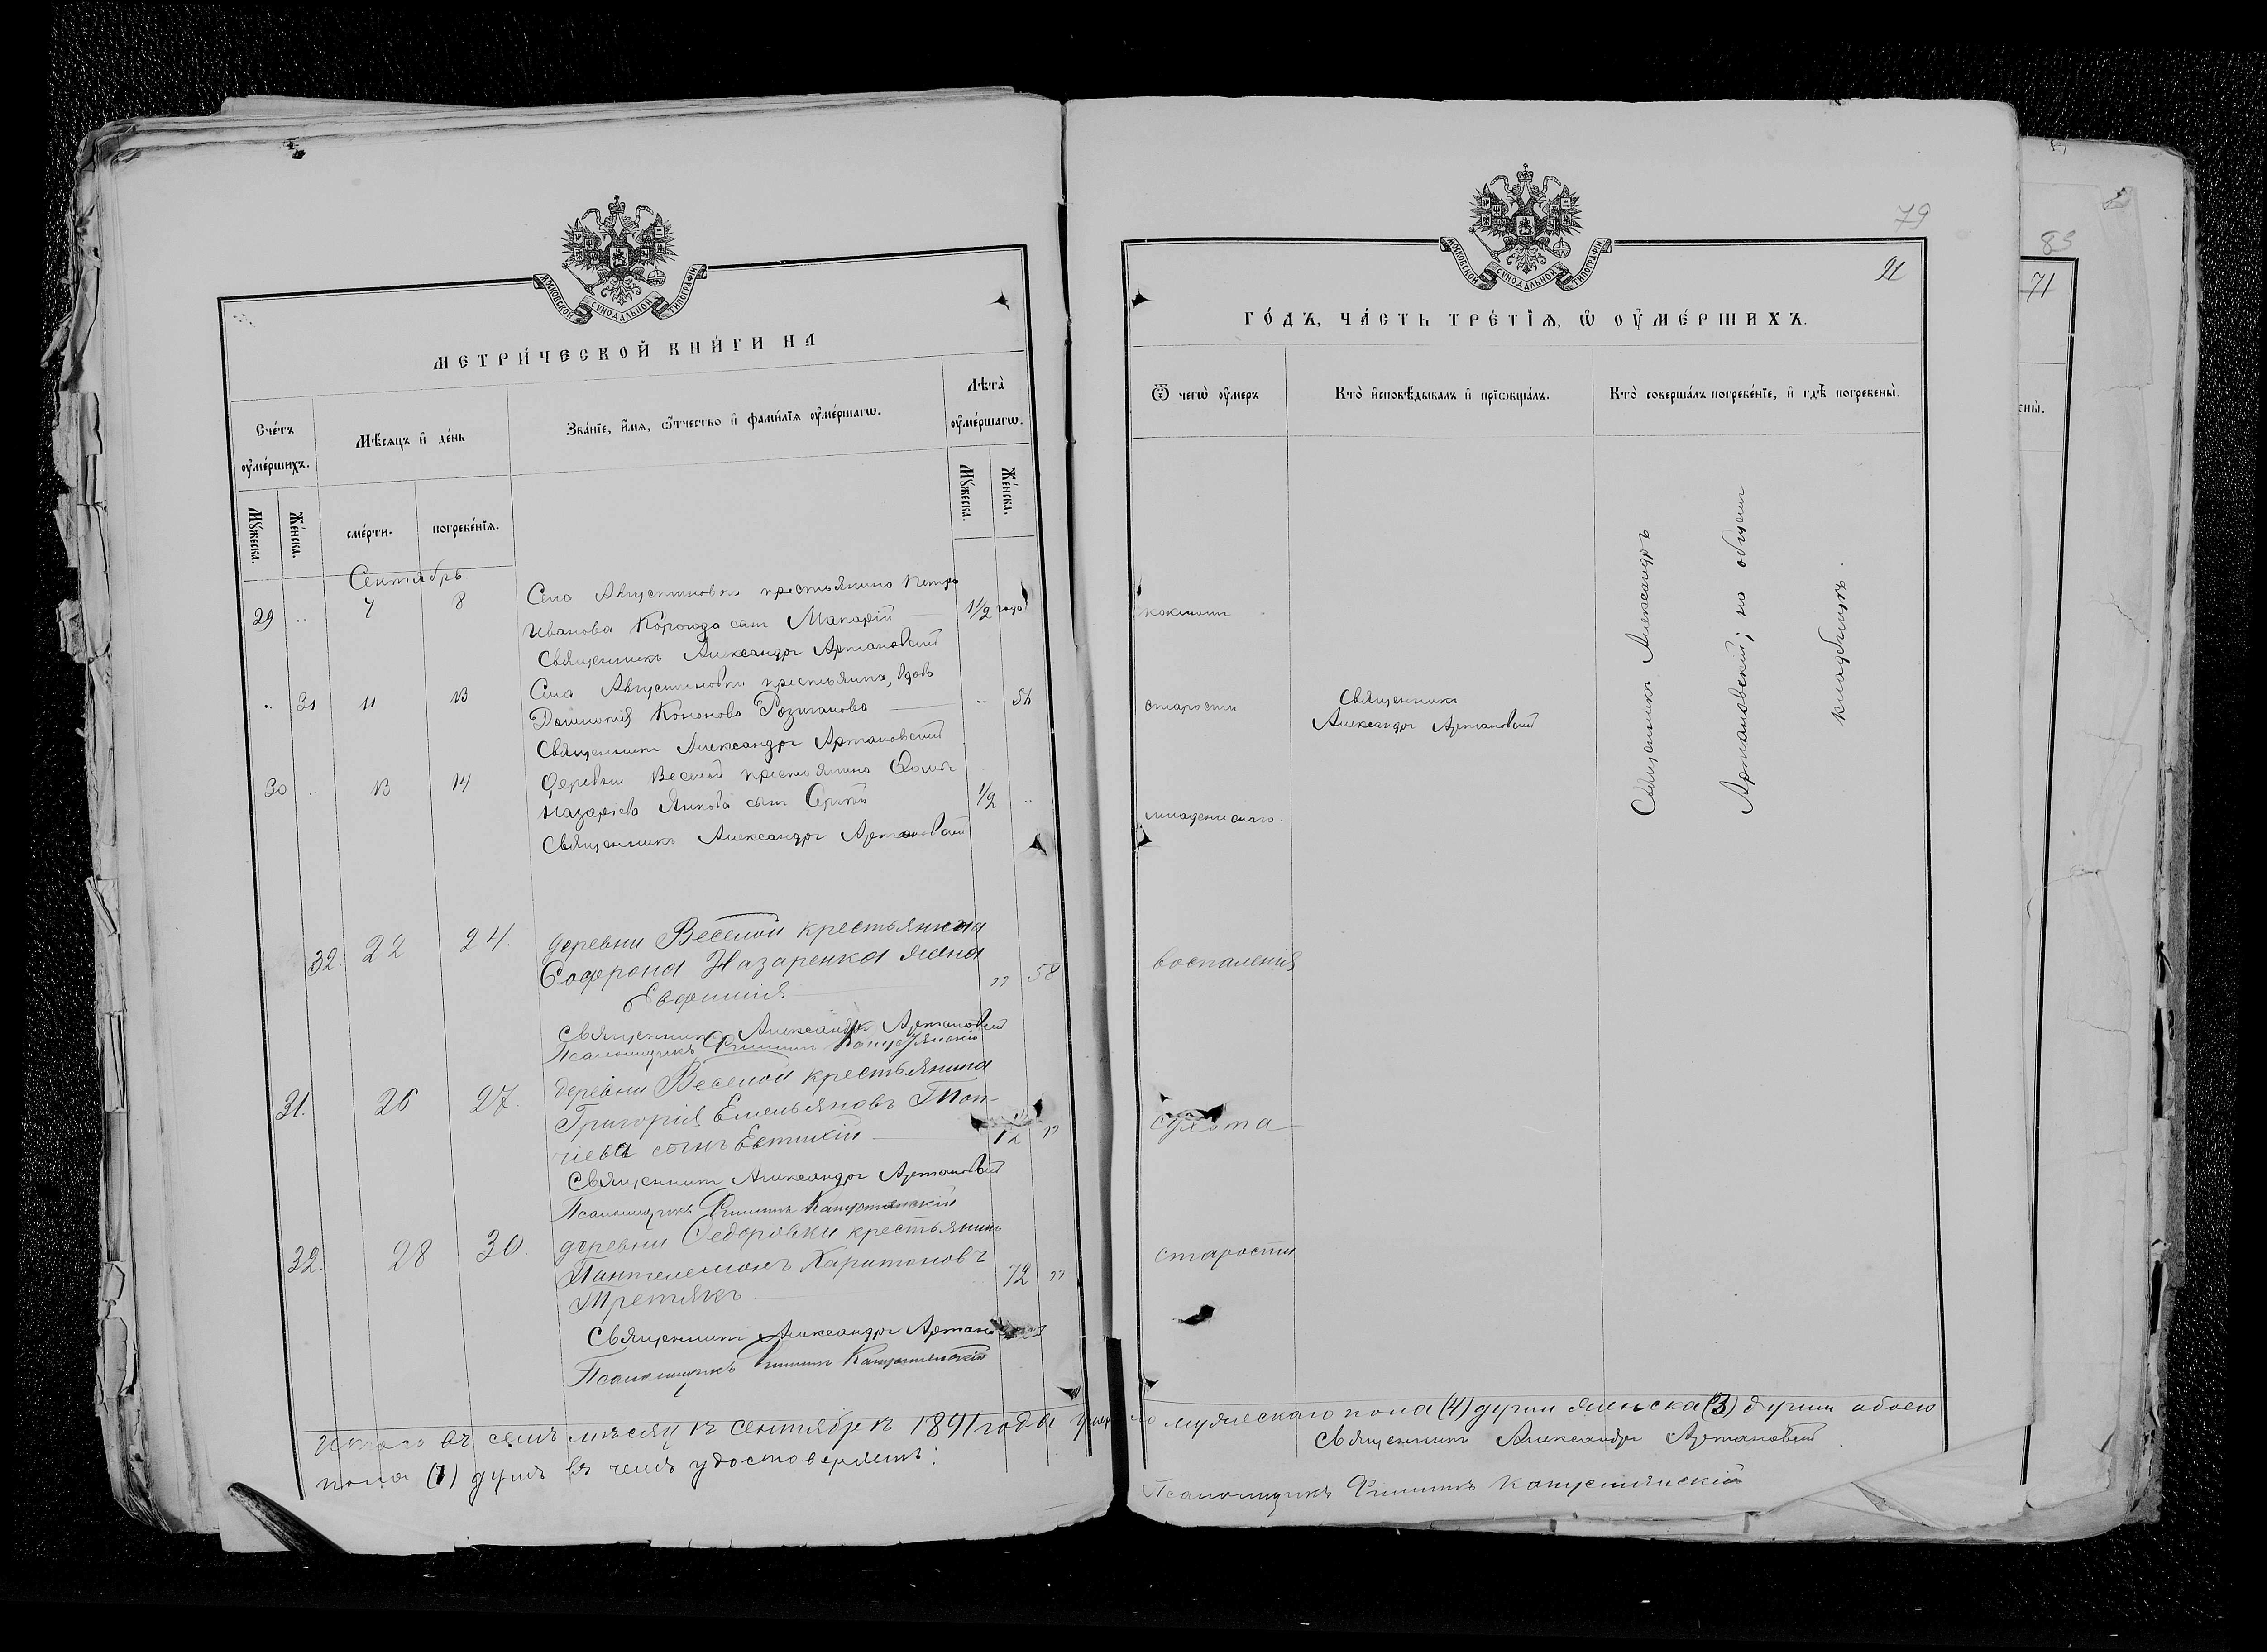 МОСКОВСКОЙ СѴНОДАЛЬНОЙ ТИПОГРАФІИ
МЕТРИ́ЧЕСКОЙ КНИ́ГИ НА
Сче́тъ ᲂу҆ме́ршихъ.
Мꙋ́жеска.
Же́нска.
Мѣ́сѧцъ и҆ де́нь
сме́рти.
погребе́нїѧ.
Зва́нїе, и҆́мѧ, ѻ҆́тчество и҆ фами́лїѧ ᲂу҆ме́ршагѡ.
Лѣта̀ ᲂу҆ме́ршагѡ.
Мꙋ́жеска.
Же́нска.
Сентябрь
29 .. 7 8
Села Августиновки крестьянина Петра
Иванова сын Макарій
1½ года
Священникъ Александръ Артановский
.. 31 11 13
Села Августиновки крестьянина, вдова
Кононова
.. 56
Священник Александръ Артановский
30 .. 13 14
Деревни Веселой крестьянина Фомы
Назарiева сын Сергій
½ ..
Священникъ Александръ Артановский
32. 22 24.
деревни Веселой крестьянина
Софрона Назаренка жена
Евфимія
„ 58
Священник Александръ Артановский
Псаломщикъ Филиппъ Капустянскій
31. 26 27.
деревни Веселой крестьянина
Григорія Емельянова Топ-
чева сынъ Евтихій
12 „
Священник Александръ Артановский
Псаломщикъ Филиппъ Капустянскій
32. 28 30.
деревни Федоровки крестьянинъ
Пантелеймонъ Харитоновъ
Третякъ
72 „
Священник Александръ
Псаломщикъ Филиппъ Капустянскій
Итого въ семъ мѣсяцѣ сентябрѣ 1891 года
пола (7) душъ въ чемъ удостоверяемъ:
79
21
МОСКОВСКОЙ СѴНОДАЛЬНОЙ ТИПОГРАФІИ
ГО́ДЪ, ЧА́СТЬ ТРЕ́ТЇѦ, Ѡ҆ ОУ҆МЕ́РШИХЪ.
Ѿ чегѡ̀ ᲂу҆́меръ
Кто̀ и҆сповѣ́дывалъ и҆ прїѡбща́лъ.
Кто̀ соверша́лъ погребе́нїе, и҆ гдѣ̀ погребены̀.
коклюш
старости
Священник
Александръ Артановский
младенческаго.
Священник Александръ
Артановский; на общем
кладбищѣ.
воспаленія
старости
мужескаго пола (4) души женска (3) души обоего
Священник Александръ Артановский
Псаломщикъ Филиппъ Капустянскій
83
71